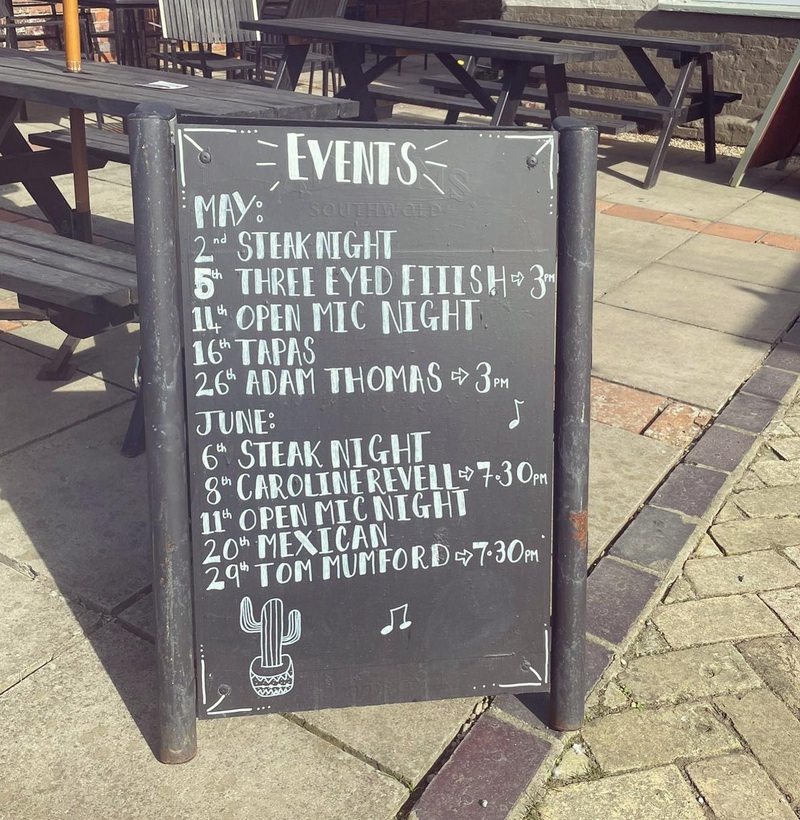 EVENTS
SOUTHWOLD
MAY:
2nd STEAK NIGHT
5th THREE EYED FIIISH ⇨ 3PM
14th OPEN MIC NIGHT
16th TAPAS
26th ADAM THOMAS ⇨ 3PM
JUNE:
6th STEAK NIGHT
8th CAROLINE REVELL ⇨ 7.30PM
11th OPEN MIC NIGHT
20th MEXICAN
29th TOM MUMFORD ⇨ 7.30PM